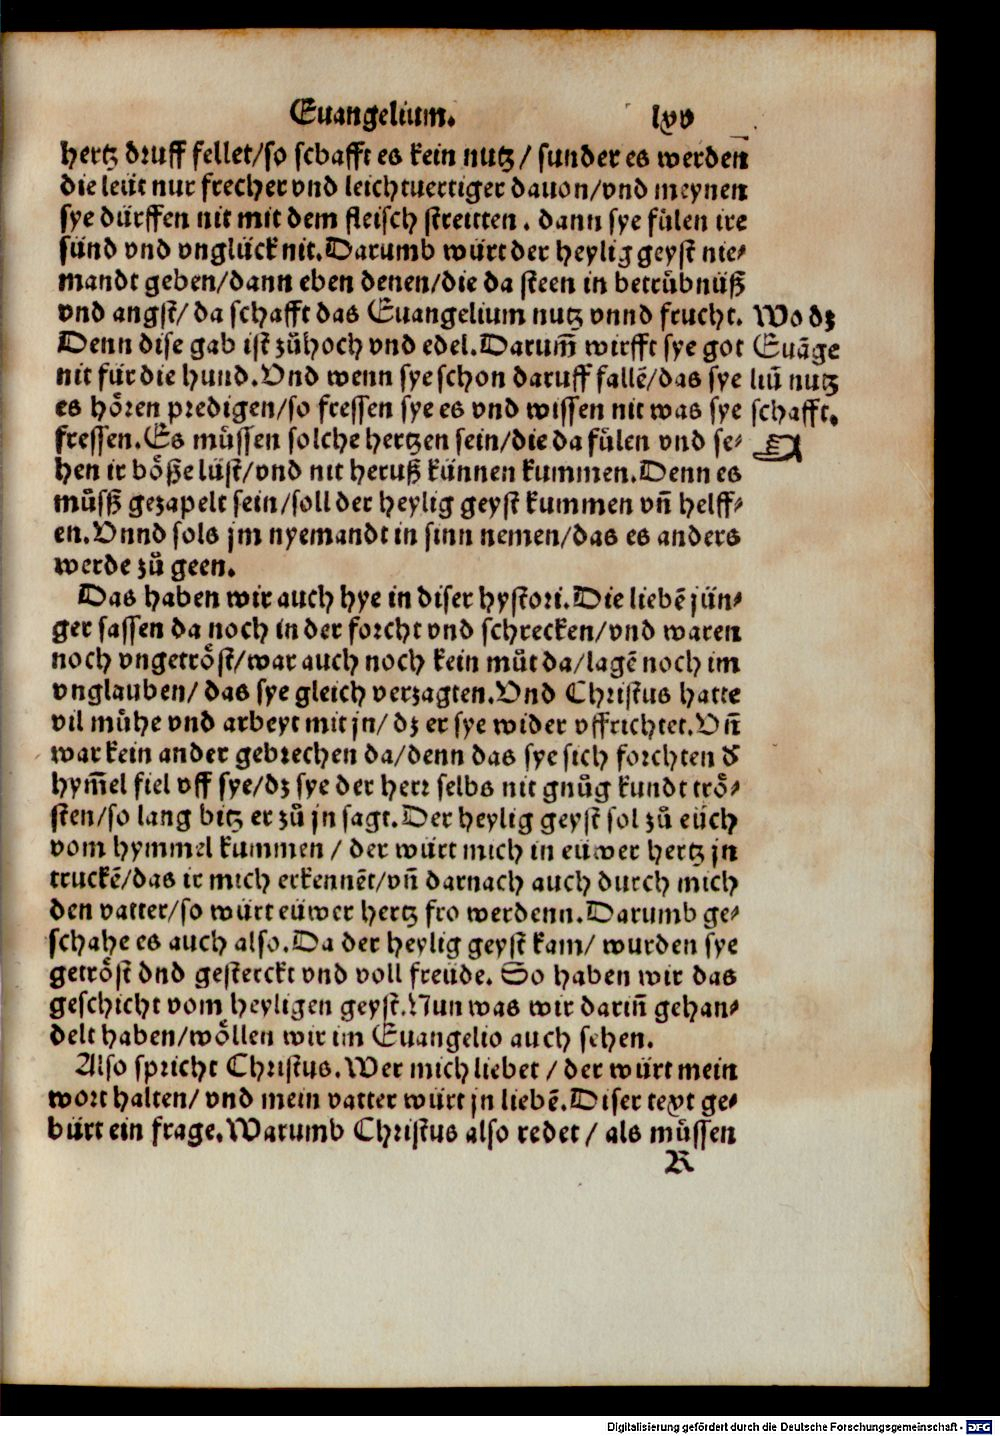 Euangelium. lxv
hertz druff fellet/so schafft es kein nutz/ sunder es werden
die leüt nur frecher vnd leichtuertiger dauon/vnd meynen
sye dürffen nit mit dem fleisch streitten. dann sye fůlen ire
sünd vnd vnglück nit. Darumb würt der heylig geyst nie⸗
mandt geben/dann eben denen/die da steen in betrůbnüß
vnd angst/ da schafft das Euangelium nutz vnnd frucht.
Denn dise gab ist zůhoch vnd edel. Darum̃ wirfft sye got
nit für die hund. Vnd wenn sye schon daruff fallẽ/das sye
es hören predigen/so fressen sye es vnd wissen nit was sye
fressen. Es můssen solche hertzen sein/die da fůlen vnd se⸗
hen ir böße lüst/vnd nit heruß künnen kummen. Denn es
můsß gezapelt sein/soll der heylig geyst kummen vñ helff⸗
en. Vnnd sols jm nyemandt in sinn nemen/das es anders
werde zů geen.
Wo dz
Euãge
liũ nutz
schafft.
Das haben wir auch hye in diser hystori. Die liebẽ jün⸗
ger sassen da noch in der forcht vnd schrecken/vnd waren
noch vngetröst/war auch noch kein můt da/lagẽ noch im
vnglauben/ das sye gleich verzagten. Vnd Christus hatte
vil můhe vnd arbeyt mit jn/ dz er sye wider vffrichtet. Vñ
war kein ander gebrechen da/denn das sye sich forchten d̃
hym̃el fiel vff sye/dz sye der herr selbs nit gnůg kundt trö⸗
sten/so lang bitz er zů jn sagt. Der heylig geyst sol zů eüch
vom hymmel kummen / der würt mich in eüwer hertz jn
truckẽ/das ir mich erkennẽt/vñ darnach auch durch mich
den vatter/so würt eüwer hertz fro werdenn. Darumb ge⸗
schahe es auch also. Da der heylig geyst kam/ wurden sye
getröst dnd gesterckt vnd voll freüde. So haben wir das
geschicht vom heyligen geyst. Nun was wir darin̄ gehan⸗
delt haben/wöllen wir im Euangelio auch sehen.
Also spricht Christus. Wer mich liebet / der würt mein
wort halten/ vnd mein vatter würt jn liebẽ. Diser text ge⸗
bürt ein frage. Warumb Christus also redet / als můssen
R
Digitalisierung gefördert durch die Deutsche Forschungsgemeinschaft - DFG